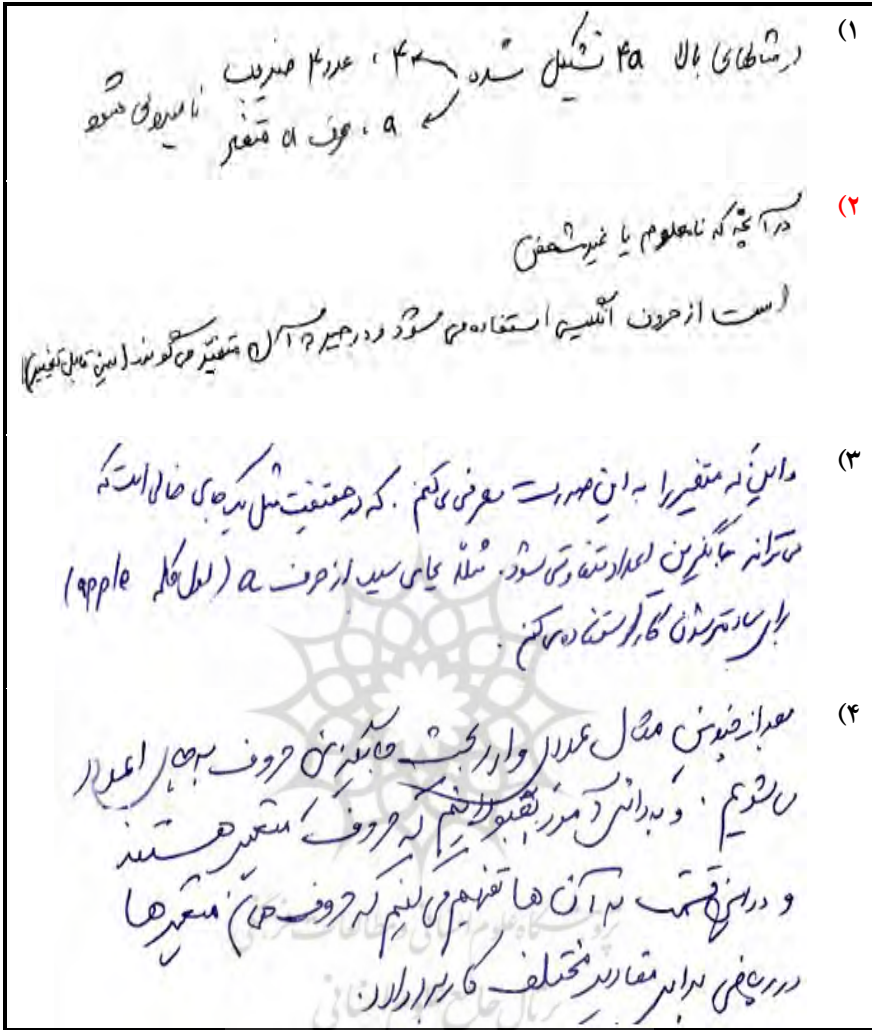 ۱)
در مثالهای بالا ۴a تشکیل شده ۴، عدد ۴ ضریب
a، حرف a متغیر نامیده می‌شود
۲)
در آنچه که نامعلوم یا غیرمشخص
است از حروف انگلیسی استفاده می‌شود و در جبر به آن متغیّر می‌گویند (یعنی قابل تغییر)
۳)
و این که متغیر را به این صورت معرفی می‌کنم. که در حقیقت مثل یک جای خالی است که
می‌تواند جایگزین اعداد متفاوتی شود. مثلاً بجای سیب از حرف a (اول کلمه apple)
برای ساده‌تر شدن کار استفاده می‌کنم.
۴)
بعد از چندین مثال عددی وارد بحث جایگزینی حروف به جای اعداد
می‌شویم. و به دانش‌آموز بقبولانیم که حروف متغیر هستند
و در این قسمت به آن‌ها تفهیم می‌کنیم که حروف همان متغیرها
در ریاضی برابر مقادیر مختلف کاربرد دارد.
پژوهشگاه علوم انسانی و مطالعات فرهنگی
پرتال جامع علوم انسانی